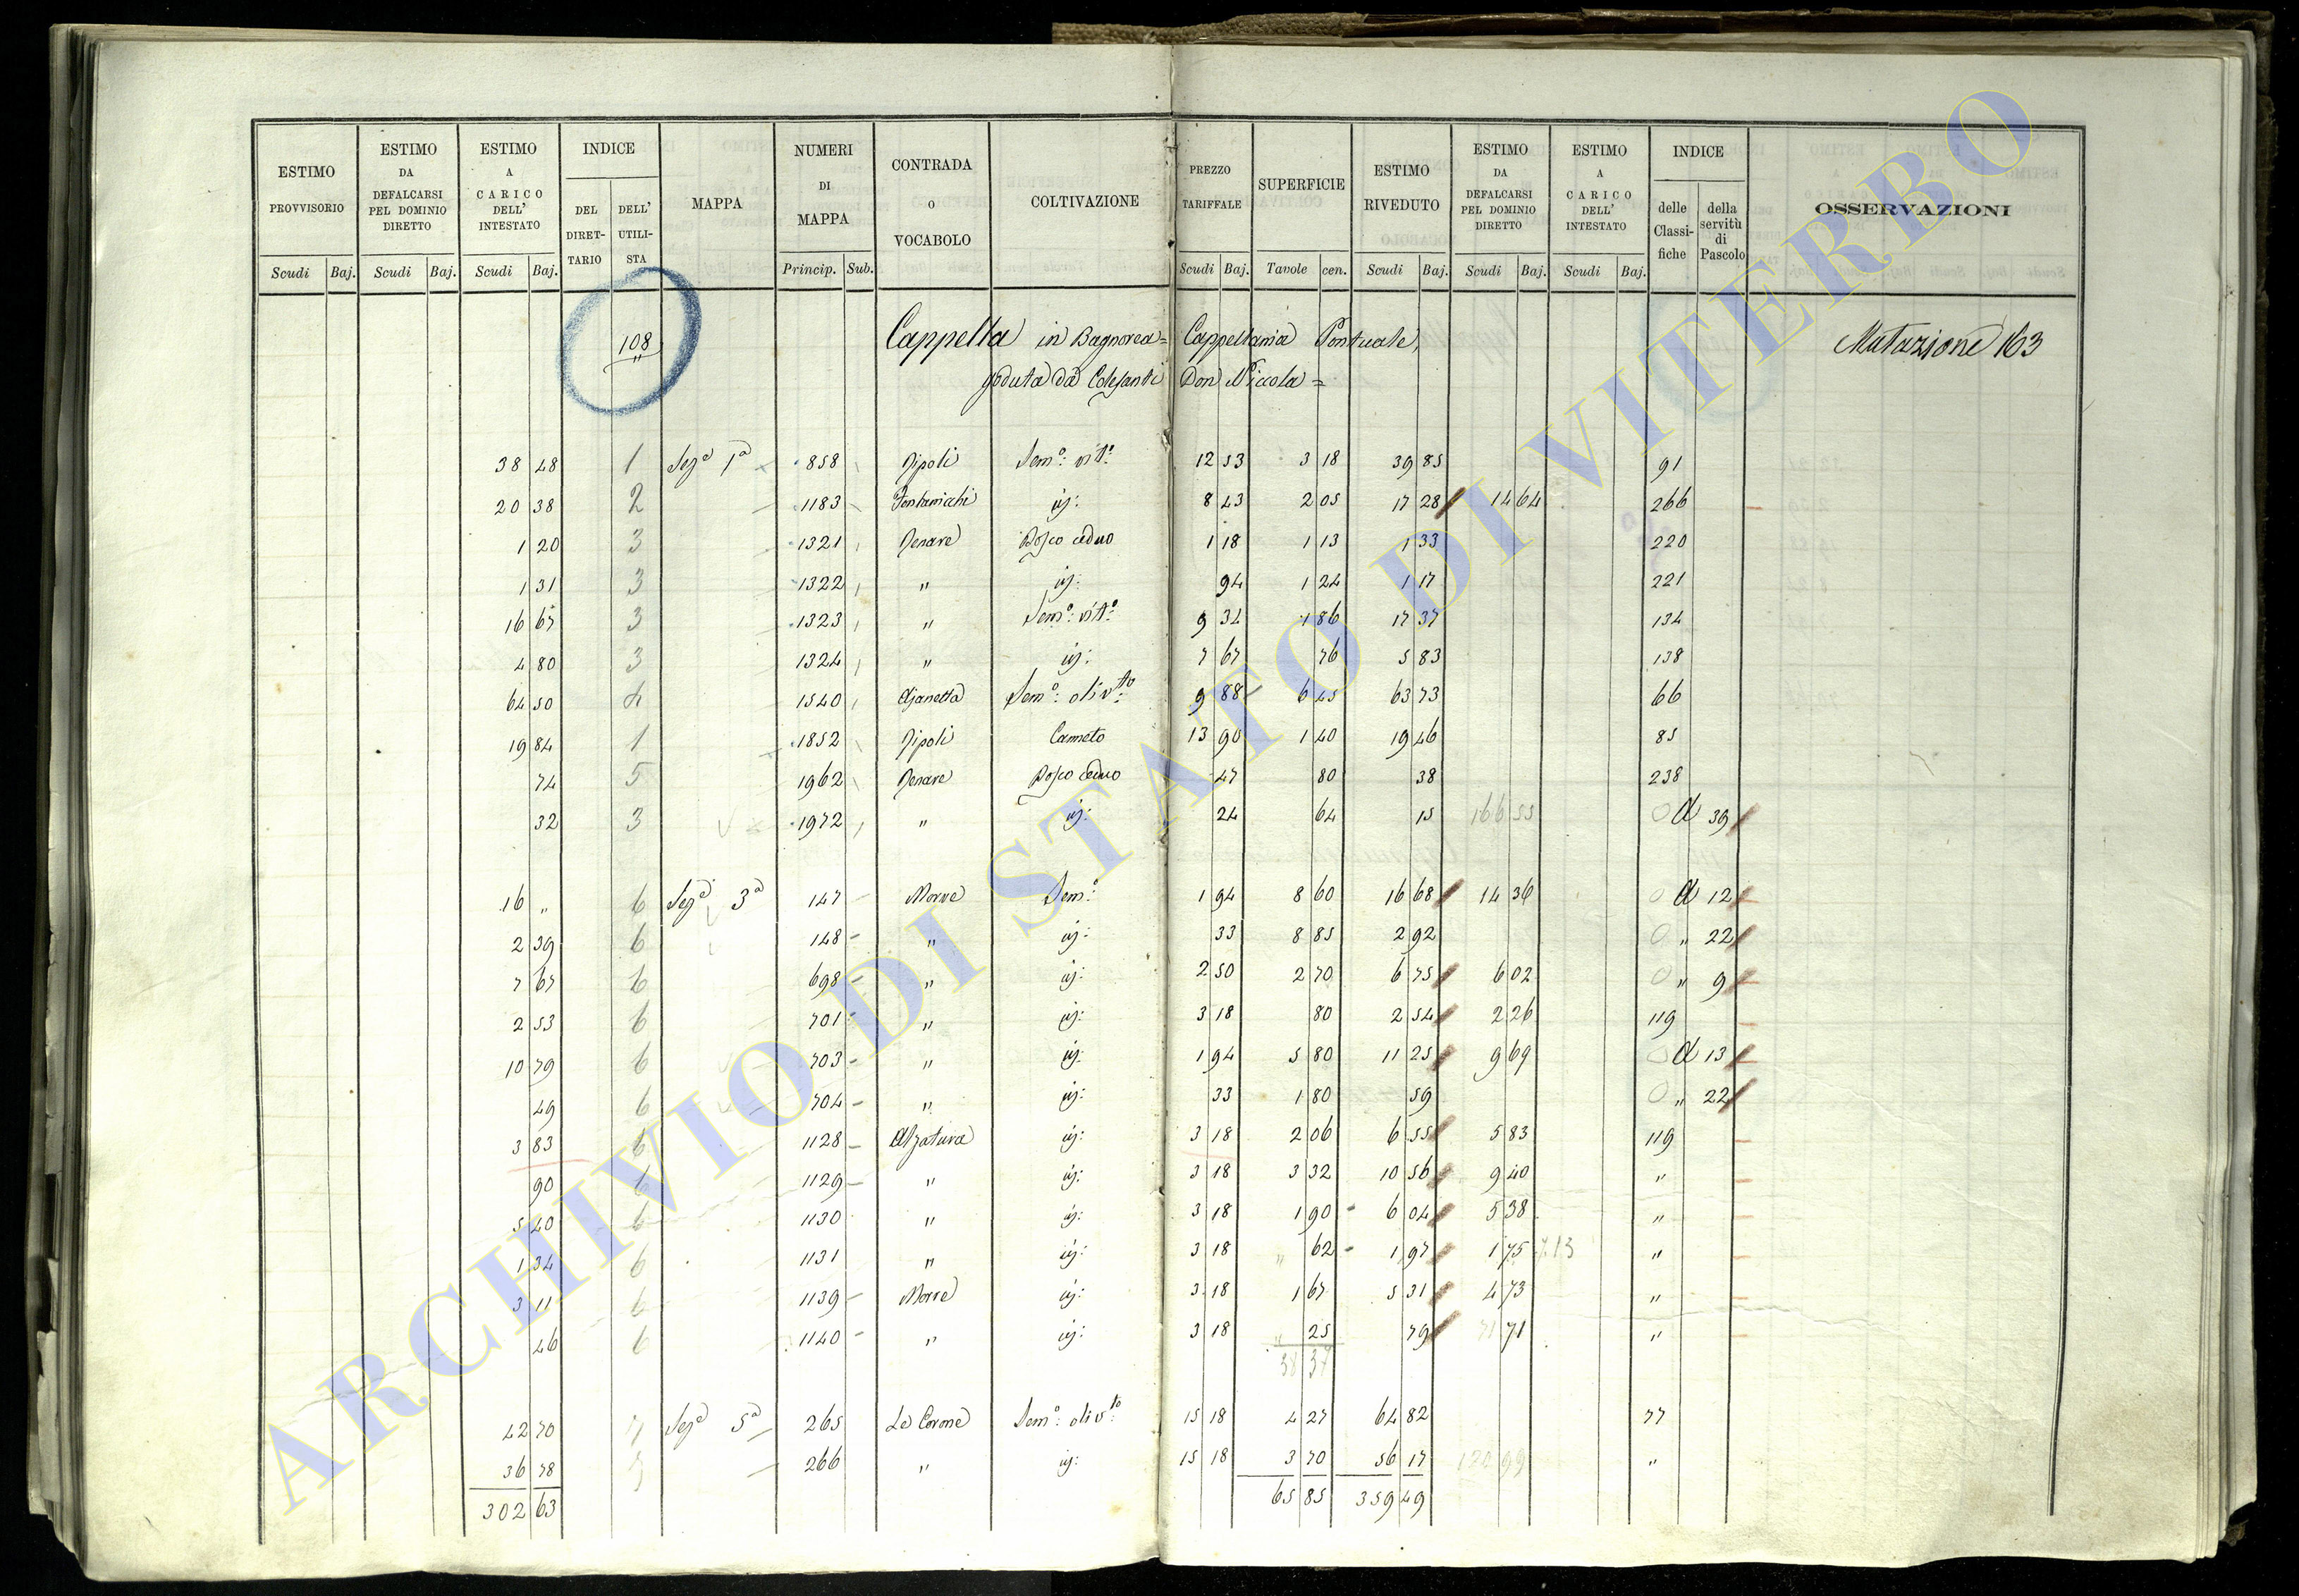 ESTIMO PROVVISORIO | ESTIMO DA DEFALCARSI PEL DOMINIO DIRETTO | ESTIMO A CARICO DELL' INTESTATO | INDICE DEL DIRET-TARIO | DELL' UTILI-STA | MAPPA | NUMERI DI MAPPA | CONTRADA O VOCABOLO | COLTIVAZIONE | PREZZO TARIFFALE | SUPERFICIE | ESTIMO RIVEDUTO | ESTIMO DA DEFALCARSI PEL DOMINIO DIRETTO | ESTIMO A CARICO DELL' INTESTATO | INDICE delle Classi-fiche | della servitù di Pascolo | OSSERVAZIONI
Scudi | Baj. | Scudi | Baj. | Scudi | Baj. | Princip. | Sub. | Scudi | Baj. | Tavole | cen. | Scudi | Baj. | Scudi | Baj. | Scudi | Baj.
108 Cappella in Bagnorea = Cappellania Pontuale, Mutazione 163
goduta da Colesanti Don Niccola =
38 48 1 Sez.a 1a 858 Sem.o: vit.o 12 53 3 18 39 85 91
20 38 2 1183 id: 8 43 2 05 17 28 14 64 266
1 20 3 1321 Bosco ceduo 1 18 1 13 1 33 220
1 31 3 1322 " id: 94 1 24 1 17 221
16 67 3 1323 " Sem.o: vit.o 9 34 1 86 17 37 134
4 80 3 1324 " id: 7 67 76 5 83 138
64 50 4 1540 Sem.o: oliv.to 9 88 6 45 63 73 66
19 84 1 1852 Canneto 13 90 1 40 19 46 85
74 5 1962 Bosco ceduo 47 80 38 238
32 3 1972 " id: 24 64 15 166 55 A 39
16 " 6 Sez.a 3a 147 Morre Sem.o 1 94 8 60 16 68 14 36 A 12
2 39 6 148 " id: 33 8 85 2 92 " 22
7 67 6 698 " id: 2 50 2 70 6 75 6 02 " 9
2 53 6 701 " id: 3 18 80 2 54 2 26 119
10 79 6 703 " id: 1 94 5 80 11 25 9 69 A 13
49 6 704 " id: 33 1 80 59 " 22
3 83 6 1128 Alzatura id: 3 18 2 06 6 55 5 83 119
90 6 1129 " id: 3 18 3 32 10 56 9 40 "
5 40 6 1130 " id: 3 18 1 90 6 04 5 38 "
1 34 6 1131 " id: 3 18 " 62 1 97 1 75 "
3 11 6 1139 Morre id: 3 18 1 67 5 31 4 73 "
46 6 1140 " id: 3 18 " 25 79 71 "
38 37
42 70 7 Sez.a 5a 265 Le Corone Sem.o: oliv.to 15 18 4 27 64 82 77
36 78 266 " id: 15 18 3 70 56 17 120 99 "
302 63 65 85 359 49
ARCHIVIO DI STATO DI VITERBO